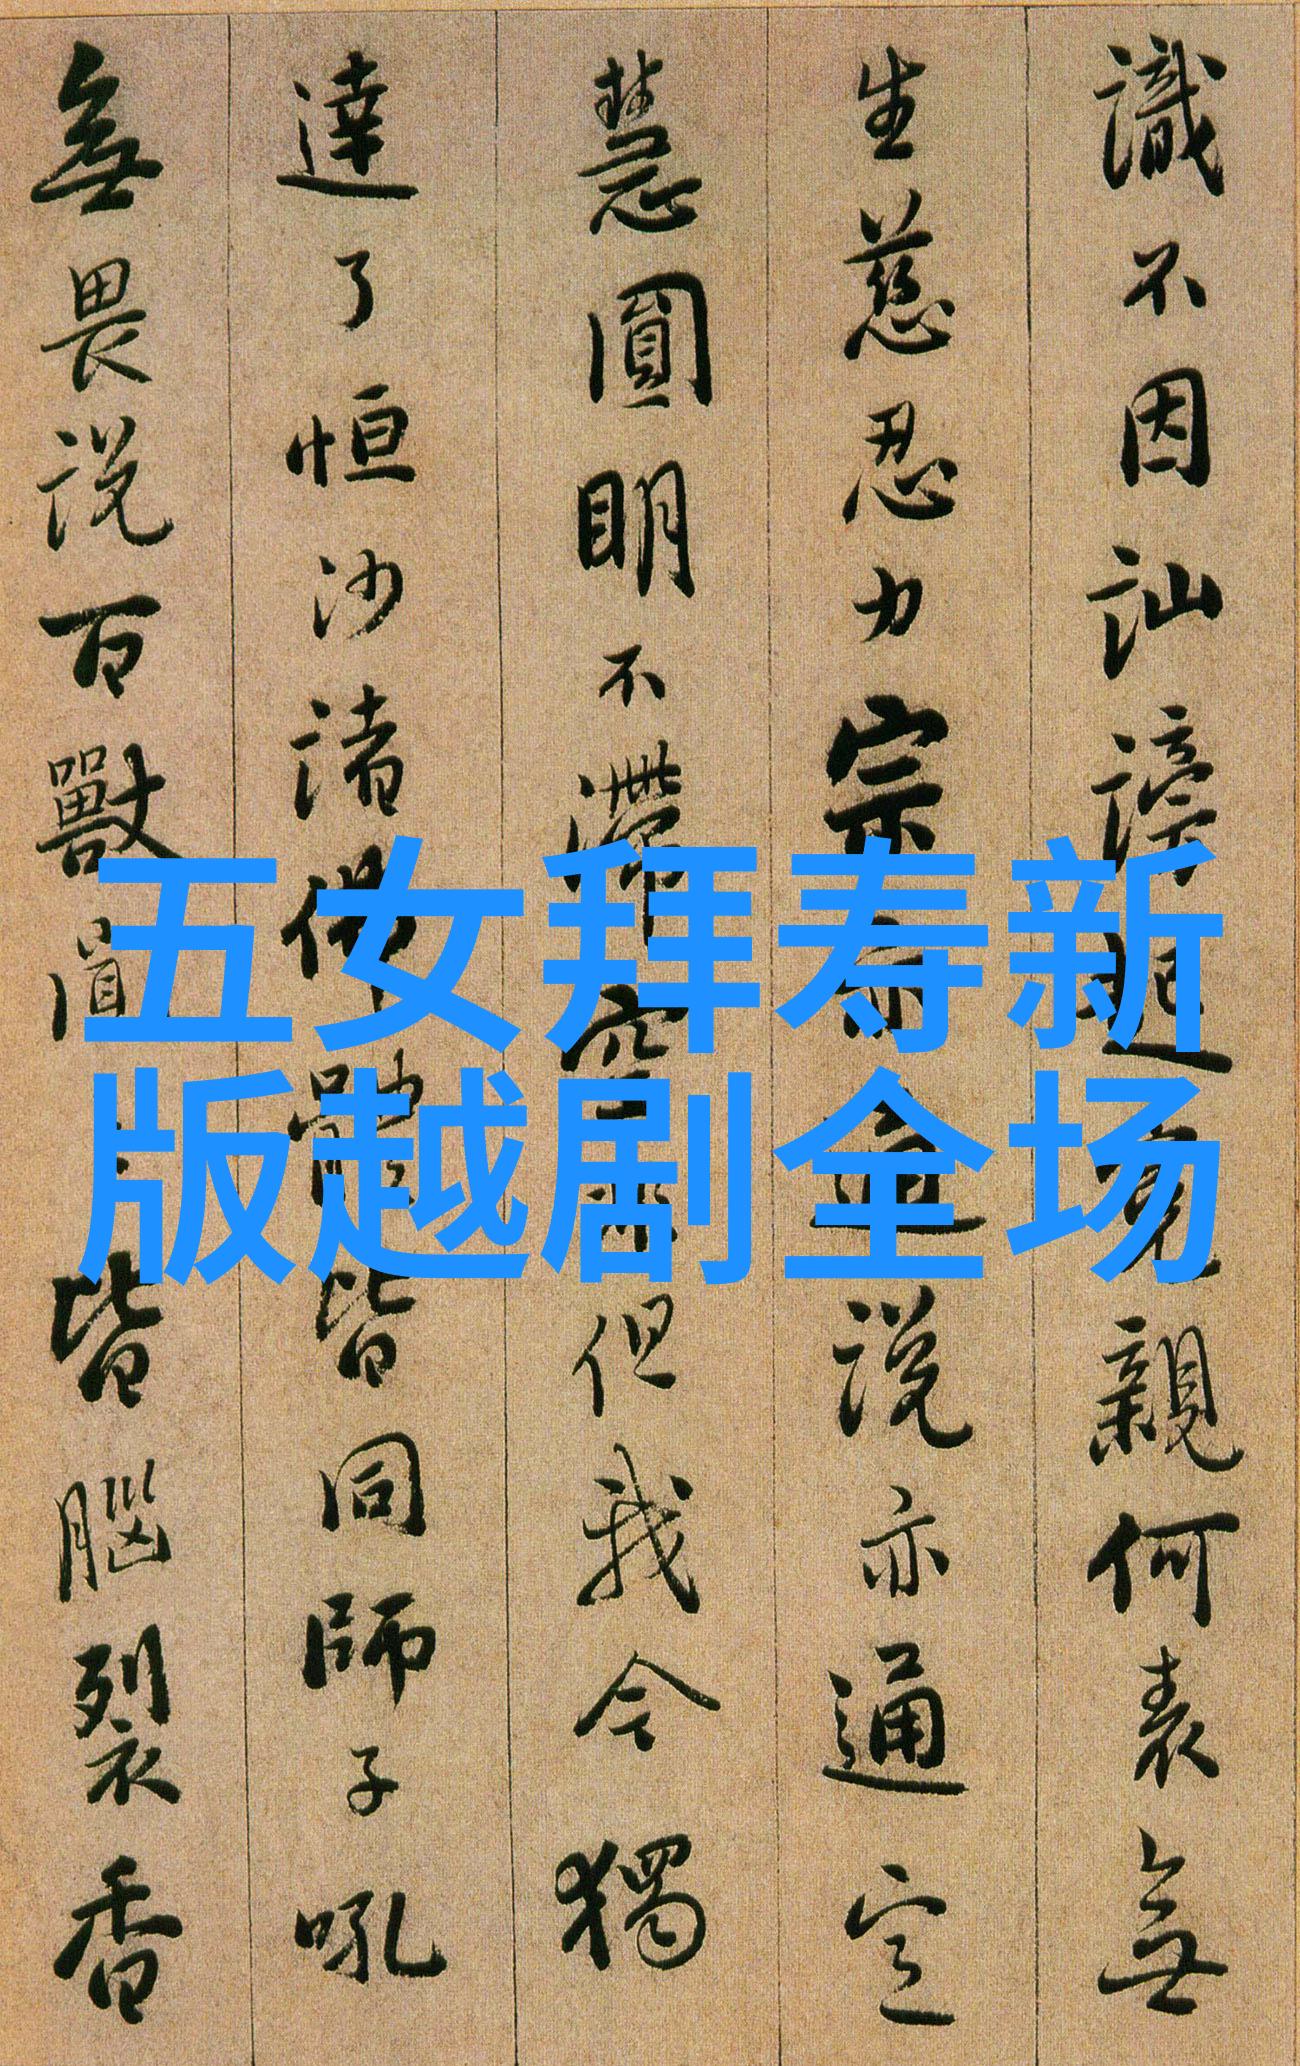 識不因訕謗起親何表無
生慈忍力宗亦通說亦通定
慧圓明不滯空非但我今獨
達了恒沙諸佛體皆同師子吼
無畏說百獸聞皆腦裂香
五女拜寿新
版越剧全场